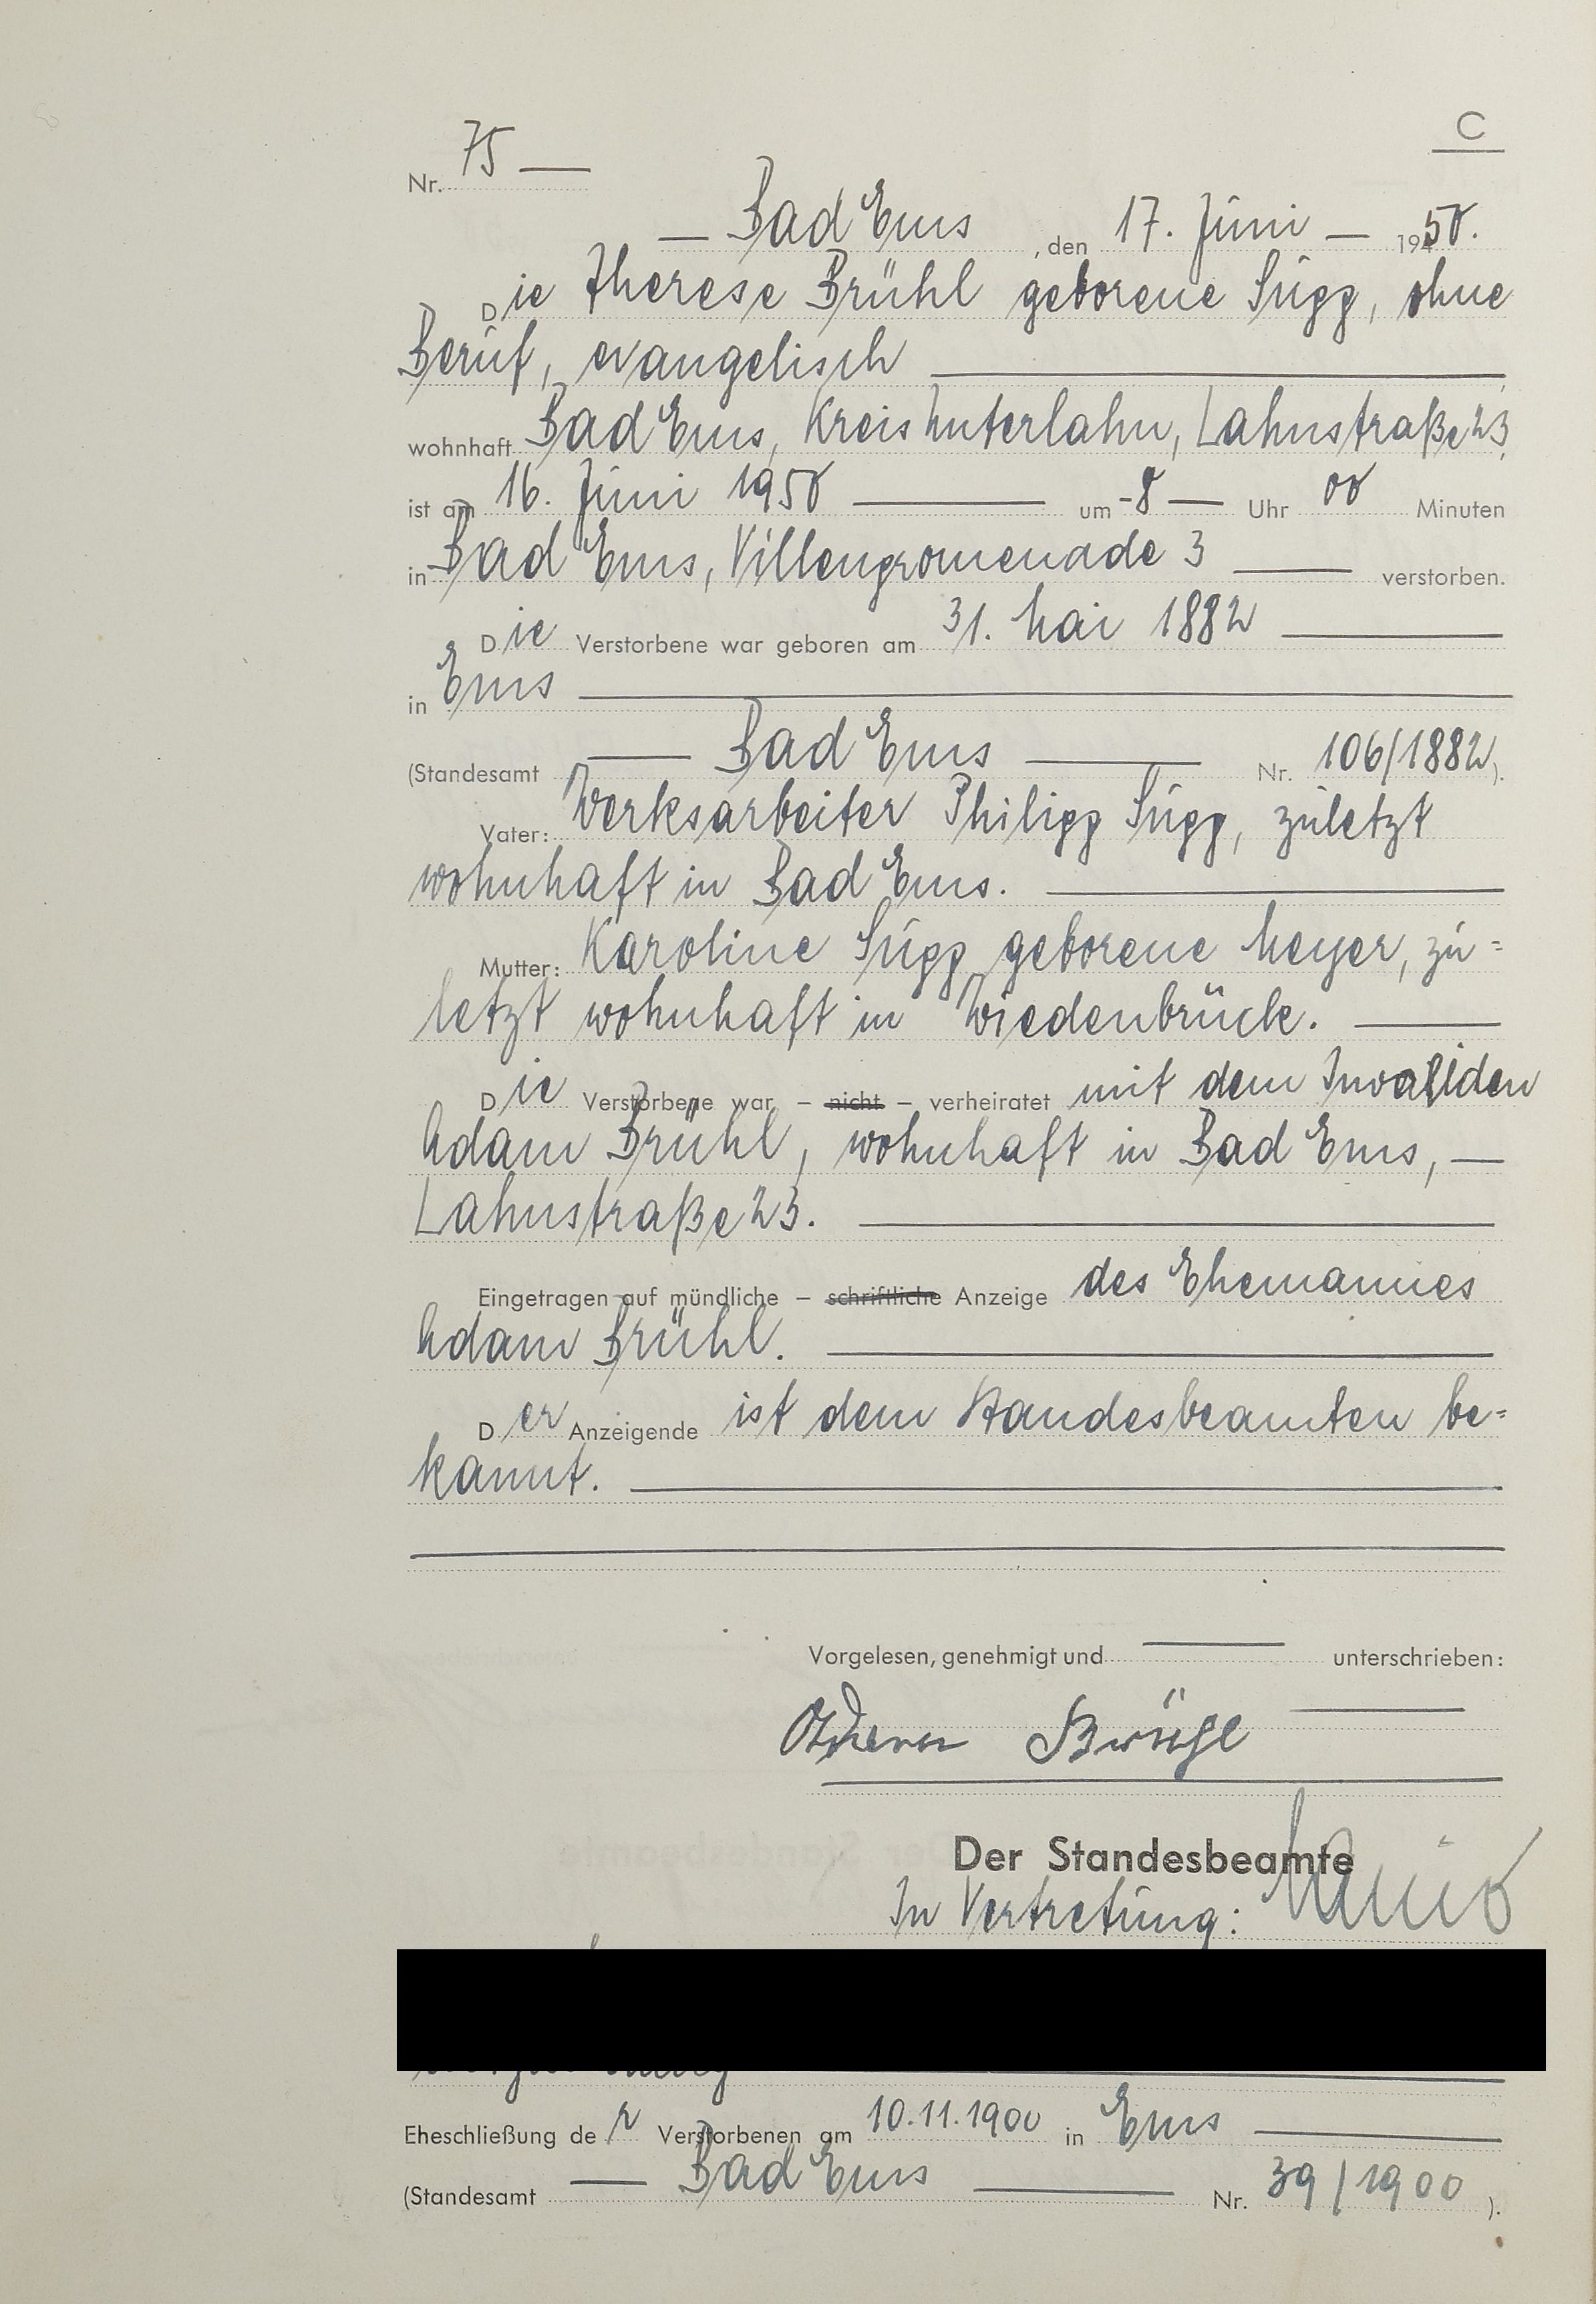 C
Nr. 75 —
— Bad Ems, den 17. Juni — 1950.
Die Therese Brühl geborene Supp, ohne
Beruf, evangelisch —
wohnhaft Bad Ems, Kreis Unterlahn, Lahnstraße 23,
ist am 16. Juni 1950 — um -8- Uhr 00 Minuten
in Bad Ems, Villenpromenade 3 — verstorben.
Die Verstorbene war geboren am 31. Mai 1882 —
in Ems —
(Standesamt — Bad Ems — Nr. 106/1882).
Vater: Werksarbeiter Philipp Supp, zuletzt
wohnhaft in Bad Ems. —
Mutter: Karoline Supp geborene Meyer, zu=
letzt wohnhaft in Wiedenbrück. —
Die Verstorbene war – nicht – verheiratet mit dem Invaliden
Adam Brühl, wohnhaft in Bad Ems, —
Lahnstraße 23. —
Eingetragen auf mündliche – schriftliche Anzeige des Ehemannes
Adam Brühl. —
Der Anzeigende ist dem Standesbeamten be=
kannt. —
Vorgelesen, genehmigt und — unterschrieben:
Adam Brühl
Der Standesbeamte
In Vertretung:
Eheschließung der Verstorbenen am 10.11.1900 in Ems —
(Standesamt — Bad Ems — Nr. 39/1900).